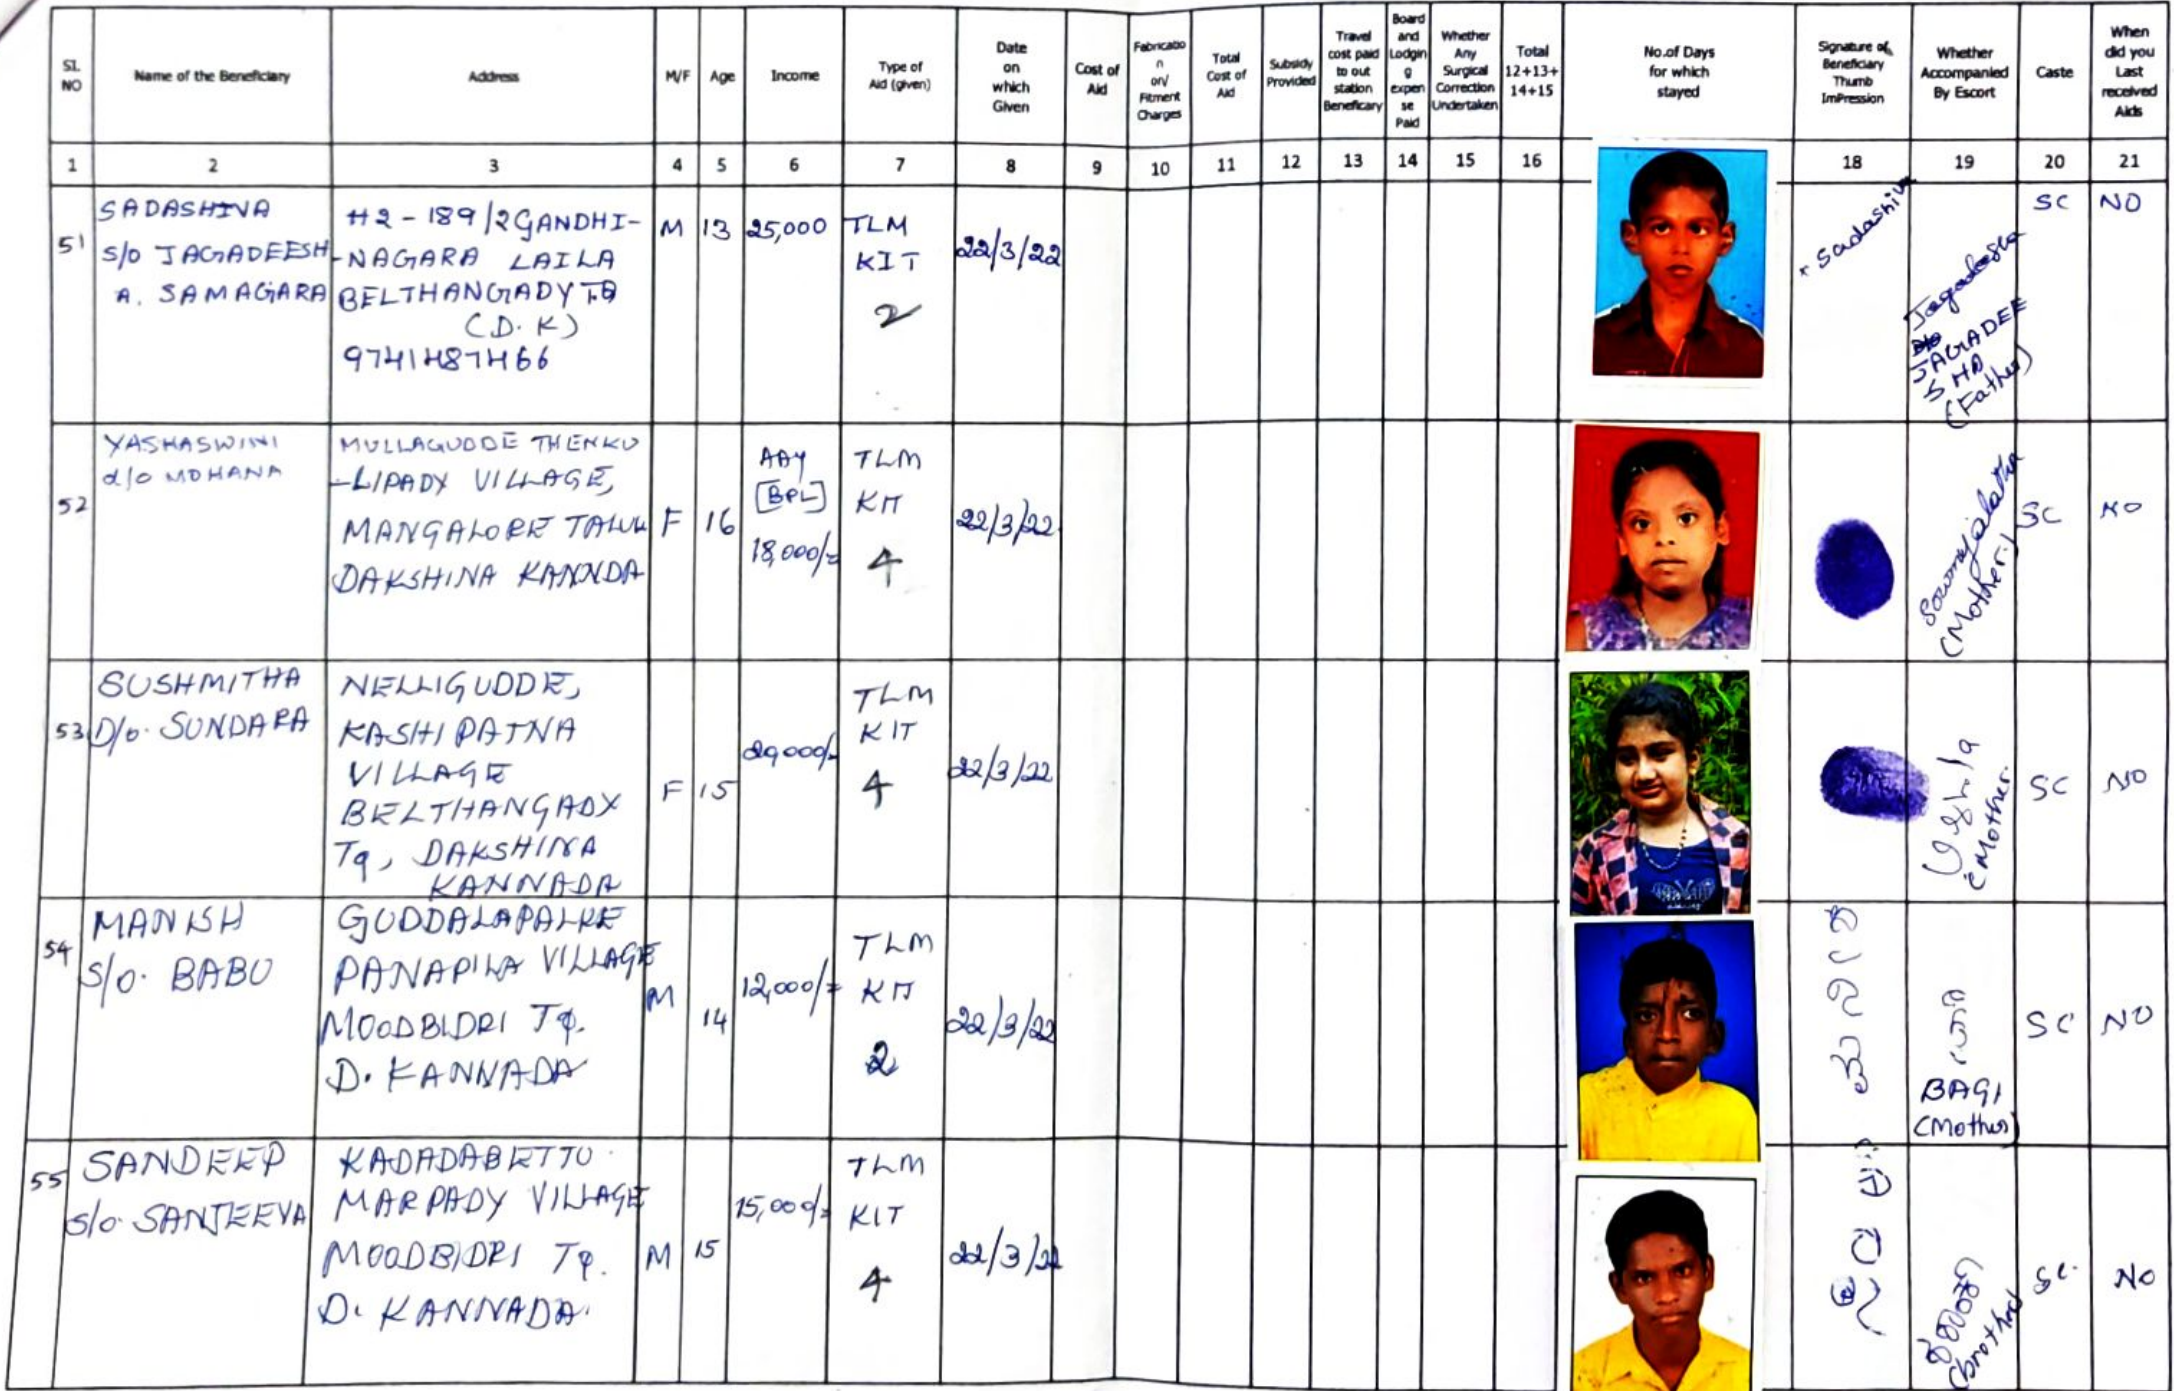 SL NO
Name of the Beneficiary
Address
M/F
Age
Income
Type of Aid (given)
Date on which Given
Cost of Aid
Fabricatio n on/ Fitment Charges
Total Cost of Aid
Subsidy Provided
Travel cost paid to out station Beneficary
Board and Lodgin g expen se Paid
Whether Any Surgical Correction Undertaken
Total 12+13+ 14+15
No.of Days for which stayed
Signature of Beneficiary Thumb ImPression
Whether Accompanied By Escort
Caste
When did you Last received Aids
1 2 3 4 5 6 7 8 9 10 11 12 13 14 15 16 18 19 20 21
51
SADASHIVA
S/O JAGADEESH
A. SAMAGARA
#2-189/2 GANDHI-
NAGARA LAILA
BELTHANGADY TQ
(D.K)
9741487466
M 13 25,000
TLM
KIT
2
22/3/22
Sadashiva
Jagadeesha
JAGADEE
SHA
(Father)
SC NO
52
YASHASWINI
d/o MOHANA
MULLAGUDDE THENKU
-LIPADY VILLAGE,
MANGALORE TALUK
DAKSHINA KANNDA
F 16
AAY
[BPL]
18,000/=
TLM
KIT
4
22/3/22
Sowmyalatha
(Mother)
SC NO
53
SUSHMITHA
D/o. SUNDARA
NELLIGUDDE,
KASHIPATNA
VILLAGE
BELTHANGADY
Tq, DAKSHINA
KANNADA
F 15
TLM
KIT
4
22/3/22
(Mother
SC NO
54
MANISH
S/O. BABU
GUDDALAPALKE
PANAPILA VILLAGE
MOODBIDRI Tq.
D. KANNADA
M 14 12,000/=
TLM
KIT
2
22/3/22
BAGI
(Mother)
SC NO
55
SANDEEP
S/o. SANJEEVA
KADADABETTU
MARPADY VILLAGE
MOODBIDRI Tq.
D. KANNADA.
M 15 15,000/=
TLM
KIT
4
22/3/22
(brother)
SC. NO